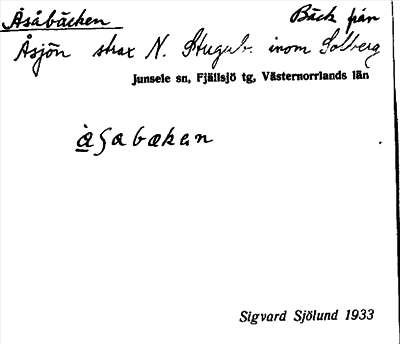 Åsåbäcken Bäck från
Åsjön strax N. Stugub. inom Solberg
Junsele sn, Fjällsjö tg, Västernorrlands län
å̀sabækɛn
Sigvard Sjölund 1933